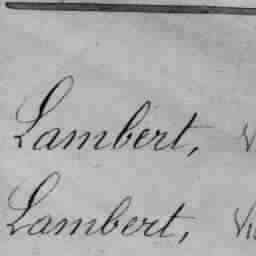 Lambert,
Lambert,